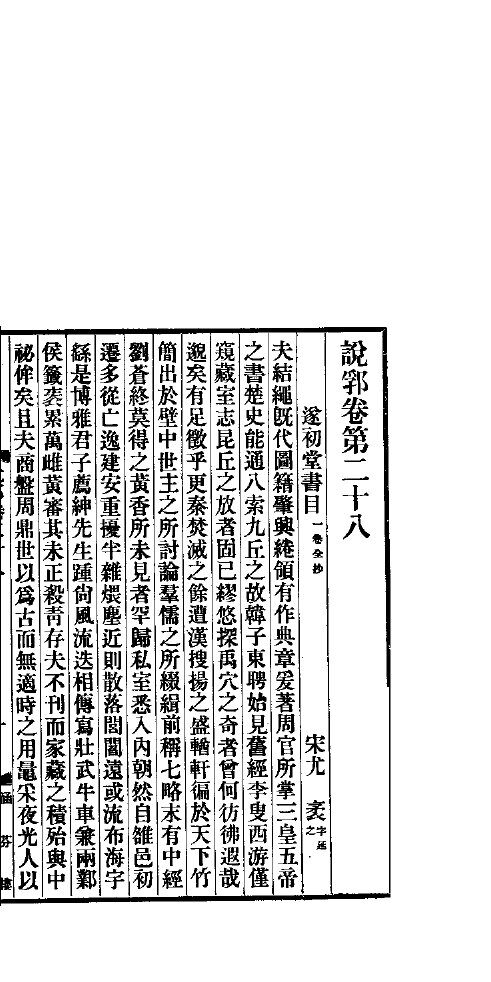 說郛卷第二十八
遂初堂書目 一卷全抄 宋尤袤 字延之
夫結繩旣代圖籍肇興綣領有作典章爰著周官所掌三皇五帝
之書楚史能通八索九丘之故韓子東聘始見舊經李叟西游僅
窺藏室志昆丘之放者固已繆悠探禹穴之奇者曾何彷彿遐哉
邈矣有足徵乎更秦焚滅之餘遭漢搜揚之盛輶軒徧於天下竹
簡出於壁中世主之所討論羣儒之所綴緝前稱七略末有中經
劉蒼終莫得之黃香所未見者罕歸私室悉入內朝然自雒邑初
遷多從亡逸建安重擾半雜煨塵近則散落閭閻遠或流布海宇
繇是博雅君子薦紳先生踵尙風流迭相傳寫壯武牛車兼兩鄴
侯籤袠累萬雌黃審其未正殺靑存夫不刊而家藏之積殆與中
祕侔矣且夫商盤周鼎世以爲古而無適時之用䍧夜光人以
涵芬樓